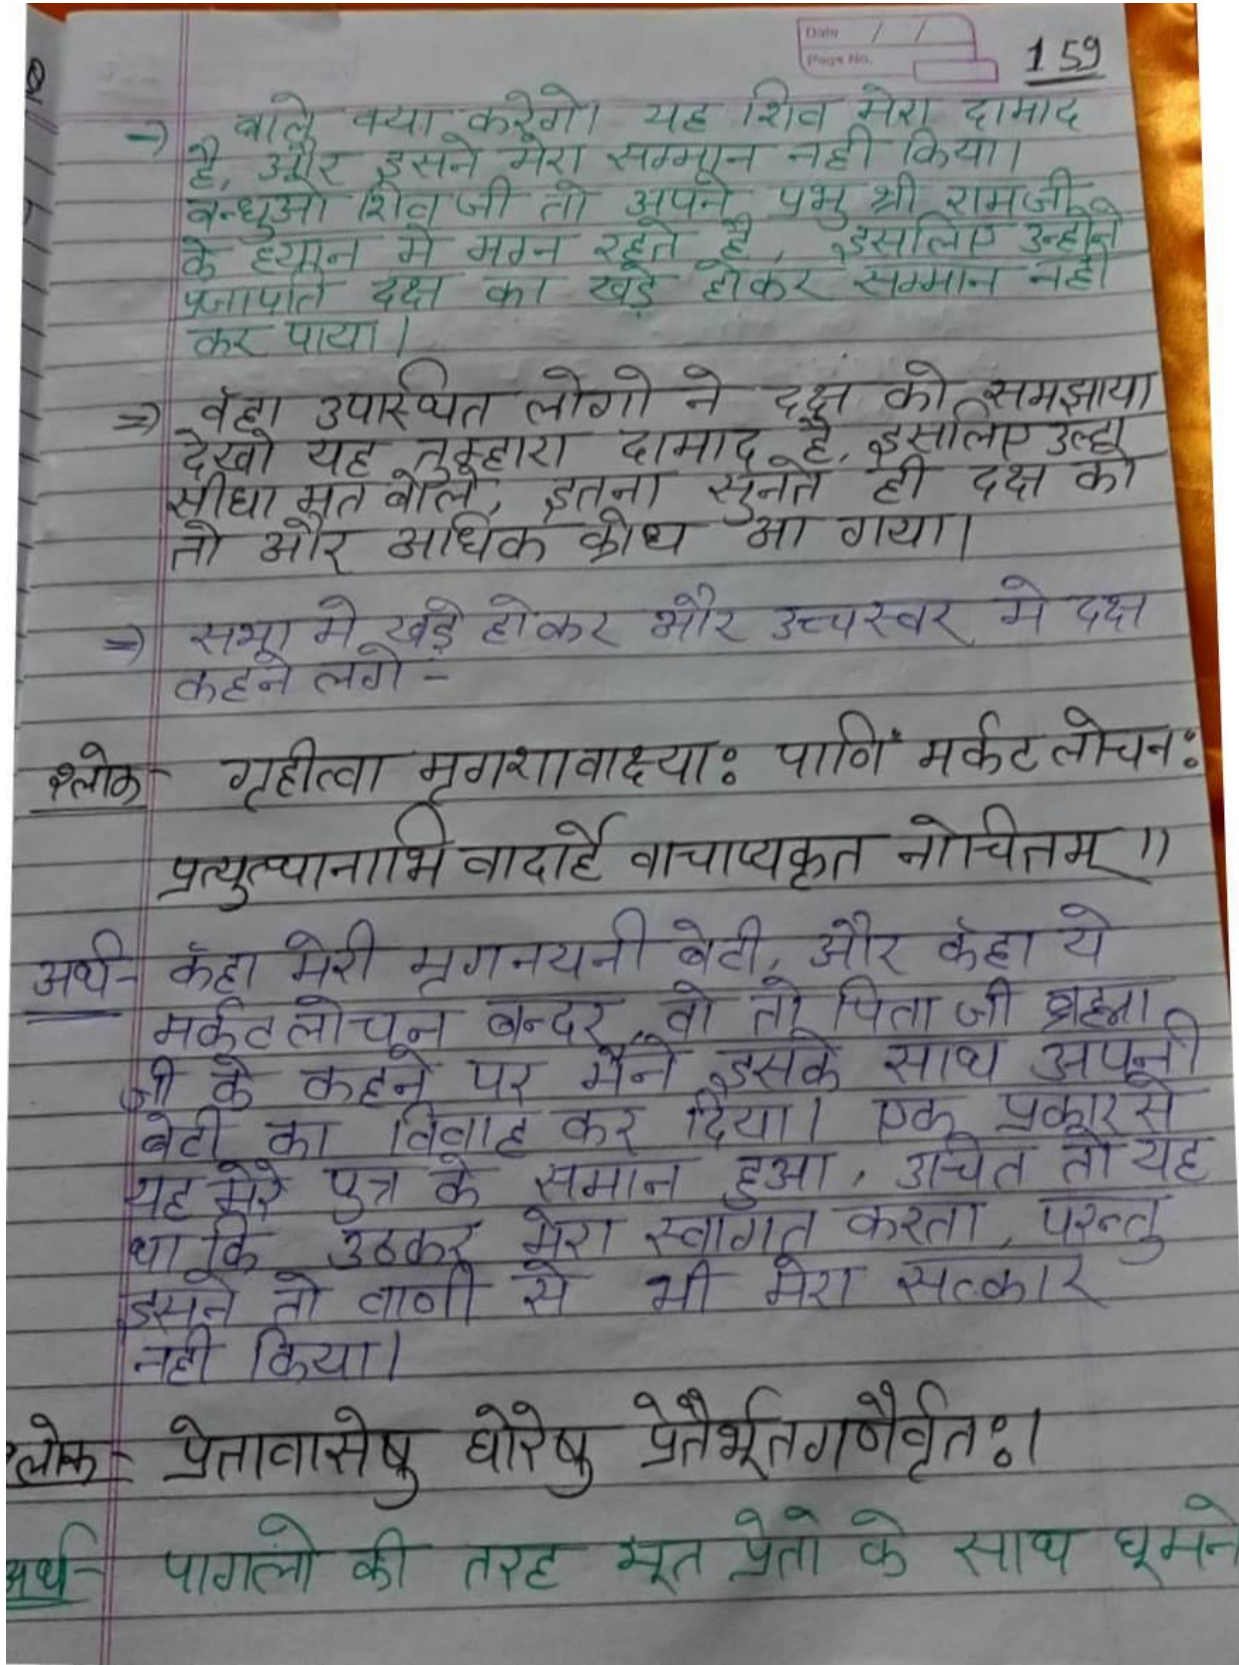 Date / /
Page No.
159
→ वाले क्या करेगे। यह शिव मेरा दामाद
है, और इसने मेरा सम्मान नही किया।
बन्धुओ शिव जी तो अपने प्रभु श्री रामजी
के ध्यान मे मग्न रहते है, इसलिए उन्होने
प्रजापति दक्ष का खड़े होकर सम्मान नही
कर पाया।
⇒ वॅहा उपस्थित लोगो ने दक्ष को समझाया
देखो यह तुम्हारा दामाद है, इसलिए उल्टा
सीधा मत बोले, इतना सुनते ही दक्ष को
तो और अधिक क्रोध आ गया।
⇒ सभा मे खड़े होकर और उच्चस्वर मे दक्ष
कहने लगे -
श्लोक- गृहीत्वा मृगशावाक्ष्याः पाणिं मर्कट लोचनः
प्रत्युत्थानाभि वादार्हे वाचाप्यकृत नोचितम् ॥
अर्थ- कॅहा मेरी मृगनयनी बेटी, और कॅहा ये
मर्कट लोचन बन्दर, वो तो पिता जी ब्रह्मा
जी के कहने पर मैने इसके साथ अपनी
बेटी का विवाह कर दिया। एक प्रकार से
यह मेरे पुत्र के समान हुआ, उचित तो यह
था कि उठकर मेरा स्वागत करता, परन्तु
इसने तो वाणी से भी मेरा सत्कार
नही किया।
श्लोक- प्रेतावासेषु घोरेषु प्रेतैर्भूतगणैर्वृतः।
अर्थ- पागलो की तरह भूत प्रेतो के साथ घूमने